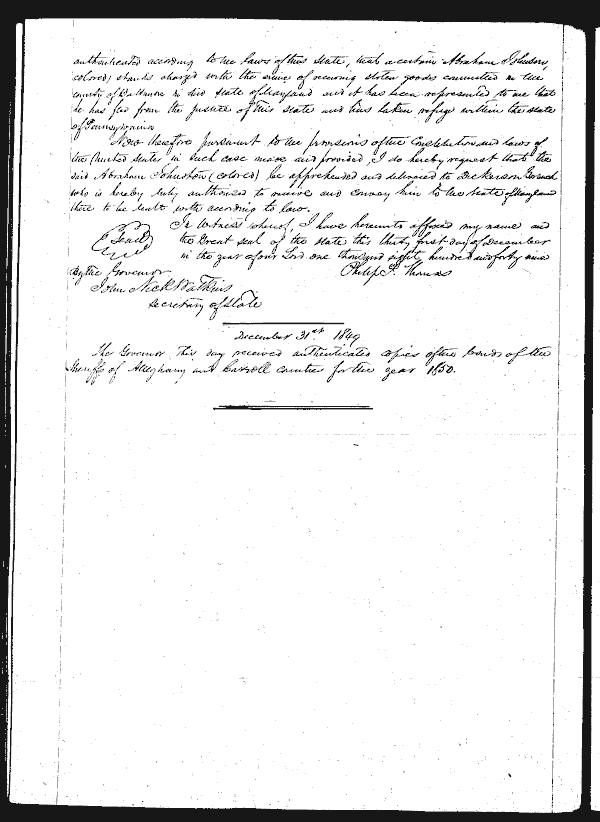 authenticated according to the laws of this state, that a certain Abraham Johnson,
colored, stands charged with the crime of receiving stolen goods committed in the
county of Baltimore in said state of Maryland and it has been represented to me that
he has fled from the justice of this state and has taken refuge within the state
of Pennsylvania
Now therefore pursuant to the provisions of the Constitution and laws of
the United States in such case made and provided, I do hereby request that the
said Abraham Johnston (colored) be apprehended and delivered to Dickerson Gorsuch
who is hereby duly authorised to receive and convey him to the state of Maryland
there to be dealt with according to law.
In Witness whereof, I have hereunto affixed my name and
(Seal) the Great seal of the state this thirty first day of December
in the year of our Lord one thousand eight hundred and forty nine
By the Governor Philip F. Thomas
John Nick Watkins
Secretary of State
December 31st 1849
The Governor this day received authenticated copies of the bonds of the
Sheriffs of Alleghany and Carroll counties for the year 1850.